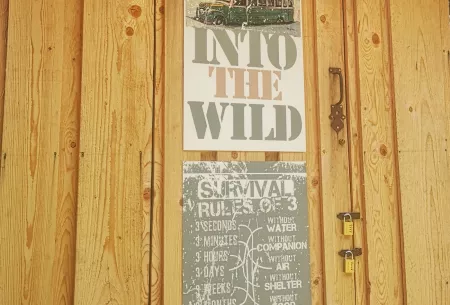 INTO
THE
WILD
SURVIVAL
RULES OF 3
3 SECONDS
3 MINUTES
3 HOURS
3 DAYS
3 WEEKS
3 MONTHS
WITHOUT
WATER
WITHOUT
COMPANION
WITHOUT
AIR
WITHOUT
SHELTER
WITHOUT